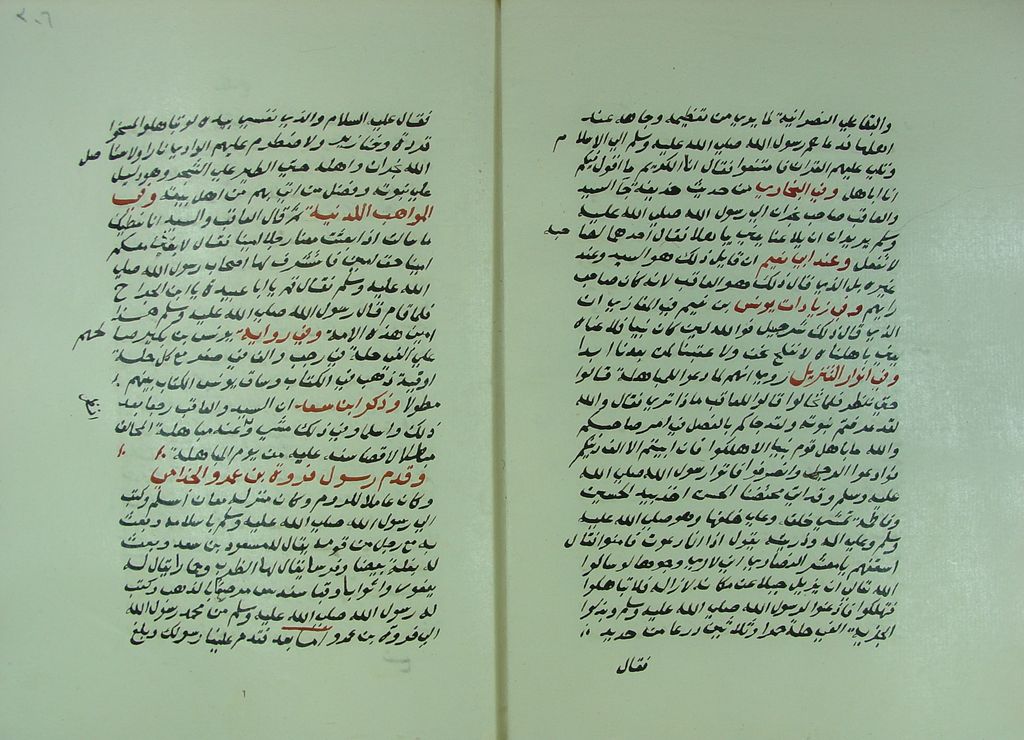 والبقا علي النصرانية لما يري من تعظيمه وجاهه عند
اهلها قد عاهم رسول الله صلي الله عليه وسلم الي الاسلام
وتلي عليهم القران فامتنعوا فقال ان انكرتم ما اقول لكم
انا اباهل وفي البخاري من حديث حذيفة جا السيد
والعاقب صاحب نجران الي رسول الله صلي الله عليه
وسلم يريدان ان يلاعنا يعني يباهلا فقال احدهما لصاحبه
لا تفعل وعند ابي نعيم ان قايل ذلك هو السيد وعند
غيره بل الذي قال ذلك هو العاقب لانه كان صاحب
رايهم وفي زيادات يونس بن بكير في المغازي ان
الذي قال ذلك شرحبيل فوالله لين كان نبيا فلاعناه
يعني باهلناه لا نفلح نحن ولا عقبنا من بعدنا ابدا
وفي انوار التنزيل روي انهم لما دعوا للمباهلة قالوا
حتي ننظر فلما تخالوا قالوا للعاقب ماذا تري فقال والله
لقد عرفتم نبوته ولقد جاكم بالفصل في امر صاحبكم
والله ما باهل قوم نبيا الا هلكوا فان ابيتم الا الف دينكم
فوادعوا الرجل وانصرفوا فاتوا رسول الله صلي الله
عليه وسلم وقد اتي محتضنا الحسين اخذ بيد الحسن
وفاطمة تمشي خلفه وعلي خلفها وهو صلي الله عليه
وسلم وعلي اله وذريته يقول اذا انا دعوت فامنوا فقال
اسقفهم يا معشر النصاري اني لاري وجوها لو سالوا
الله تعالي ان يزيل جبلا عن مكانه لازاله فلا تباهلوا
فتهلكوا فاذعنوا لرسول الله صلي الله عليه وسلم وبذلوا
الجزية الفي حلة حمرا وثلاثين درعا من حديد
فقال
٢٠٦
فقال عليه السلام والذي نفسي بيده لو تباهلوا لمسخوا
قردة وخنازير ولاضطرم عليهم الوادي نارا ولاستاصل
الله نجران واهله حتي الطير علي الشجر وهو دليل
علي نبوته وفضل من اتي بهم من اهل بيته وفي
المواهب اللدنية ثم قال العاقب والسيد انا نعطيك
ما سالت اذا بعثت معنا رجلا امينا فقال لابعثن معكم
امينا حق امين فاستشرف لها اصحاب رسول الله صلي
الله عليه وسلم فقال قم يا ابا عبيدة يا ابن الجراح
فلما قام قال رسول الله صلي الله عليه وسلم هذا
امين هذه الامة وفي رواية يونس بن بكير صالحهم
علي الفي حلة في رجب والف في صفر مع كل حلة
اوقية ذهب في الكتاب وساق يونس الكتاب بينهم
مطولا وذكر ابن سعد ان السيد والعاقب رجعا بعد
ذلك واسلما وفي ذلك مشروعية مباهلة المخالف
وقدم رسول فروة بن عمرو الجذامي
وكان عاملا للروم وكان منزله معان اسلم وكتب
الي رسول الله صلي الله عليه وسلم باسلامه وبعث
به مع رجل من قومه يقال له مسعود بن سعد وبعث
له بغلة بيضا وفرسا يقال لها الظرب وحمارا يقال له
يعفور واثوابا وقبا سندس مرصعا بالذهب وكتب
له رسول الله صلي الله عليه وسلم من محمد رسول الله
الي فروة بن عمرو اما بعد فقدم علينا رسولك وبلغ